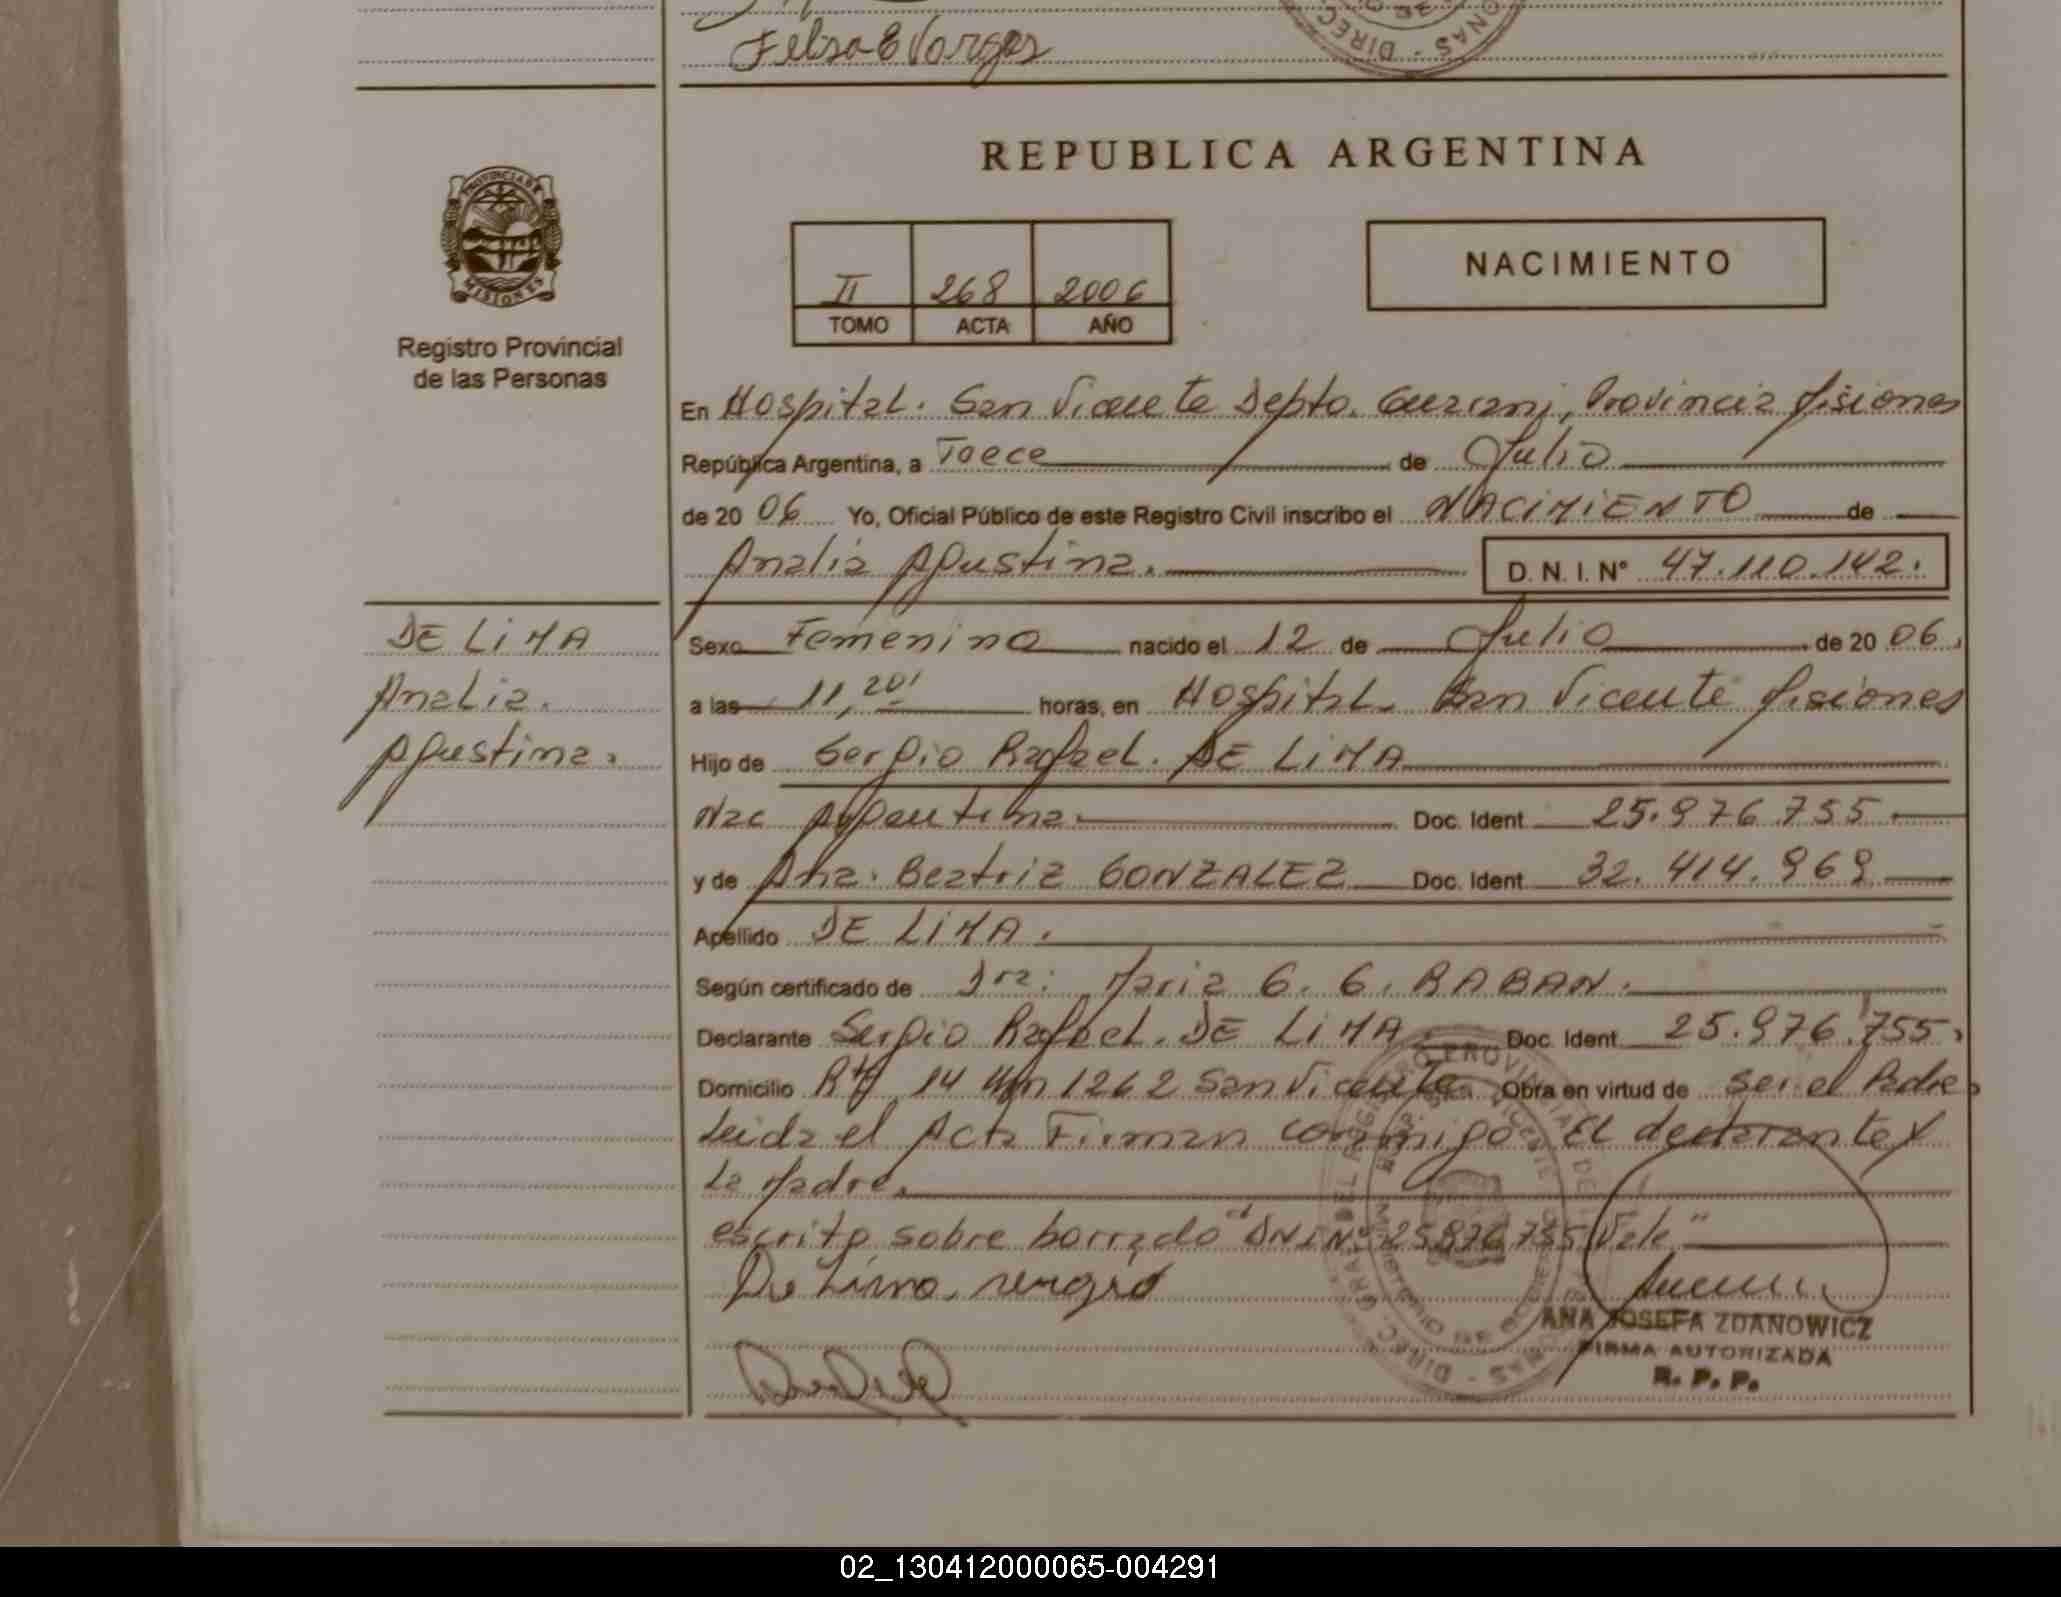 Felisa E Vargas
REPUBLICA ARGENTINA
PROVINCIA DE
MISIONES
Registro Provincial
de las Personas
II 268 2006
TOMO ACTA AÑO
NACIMIENTO
En Hospital. San Vicente Depto. Guarani, Provincia Misiones
República Argentina, a Trece de Julio
de 20 06 Yo, Oficial Público de este Registro Civil inscribo el NACIMIENTO de
Analia Agustina. D. N. I. N° 47.110.142.
DE LIMA
Analia.
Agustina.
Sexo Femenino nacido el 12 de Julio de 20 06.
a las 11,20' horas, en Hospital. San Vicente Misiones
Hijo de Sergio Rafael. DE LIMA
Nac Argentina. Doc. Ident 25.976.755
y de Ana. Beatriz GONZALEZ Doc. Ident 32.414.969
Apellido DE LIMA.
Según certificado de Dra: Maria G. G. RABAN.
Declarante Sergio Rafael. DE LIMA. Doc. Ident 25.976.755.
Domicilio Rta 14 Km 1262 San Vicente Obra en virtud de ser el Padre
Leida el Acta Firman conmigo El declarante y
La Madre.
escrito sobre borrado "el DNI N° 25976755 Vale"
De Lima, sergio
ANA JOSEFA ZDANOWICZ
FIRMA AUTORIZADA
R. P. P.
02_130412000065-004291